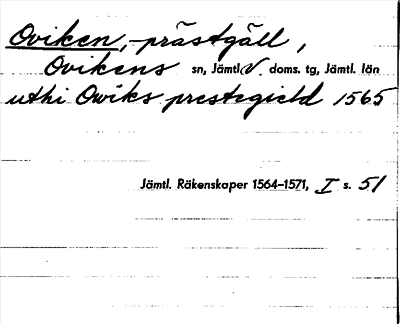 Oviken, -prästgäll,
Ovikens sn, Jämtl. V doms. tg, Jämtl. län
uthi Owiks prestegield 1565
Jämtl. Räkenskaper 1564–1571, I s. 51